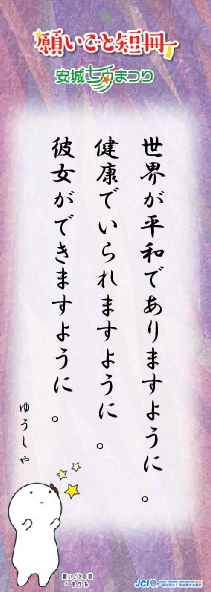 願いごと短冊
安城七夕まつり
世界が平和でありますように。
健康でいられますように。
彼女ができますように。
ゆうしゃ
JCI